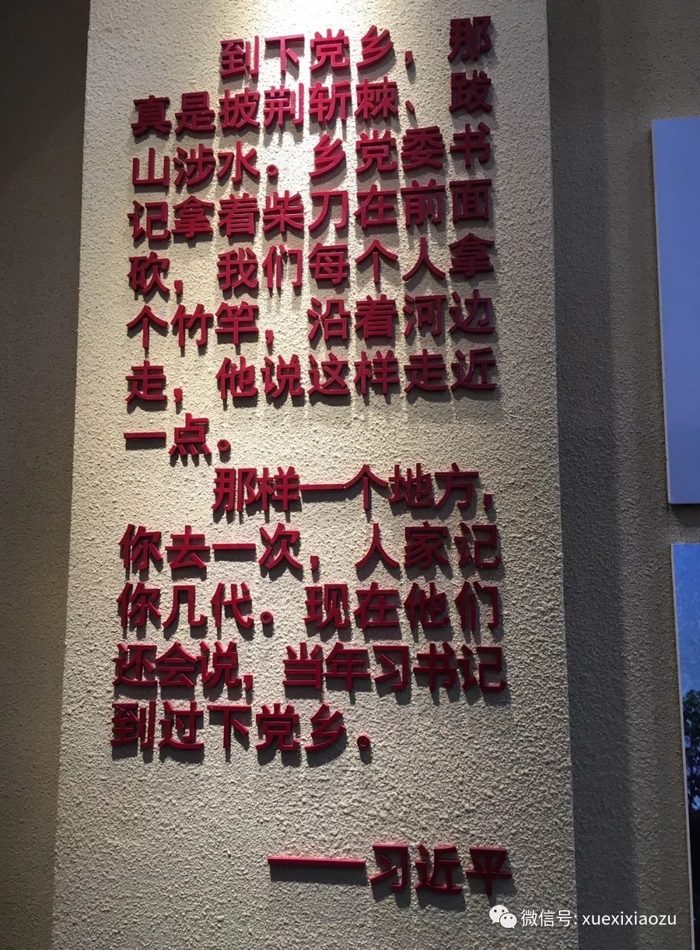 到下党乡，那
真是披荆斩棘、跋
山涉水。乡党委书
记拿着柴刀在前面
砍，我们每个人拿
个竹竿，沿着河边
走，他说这样走近
一点。
那样一个地方，
你去一次，人家记
你几代。现在他们
还会说，当年习书记
到过下党乡。
——习近平
微信号: xuexixiaozu